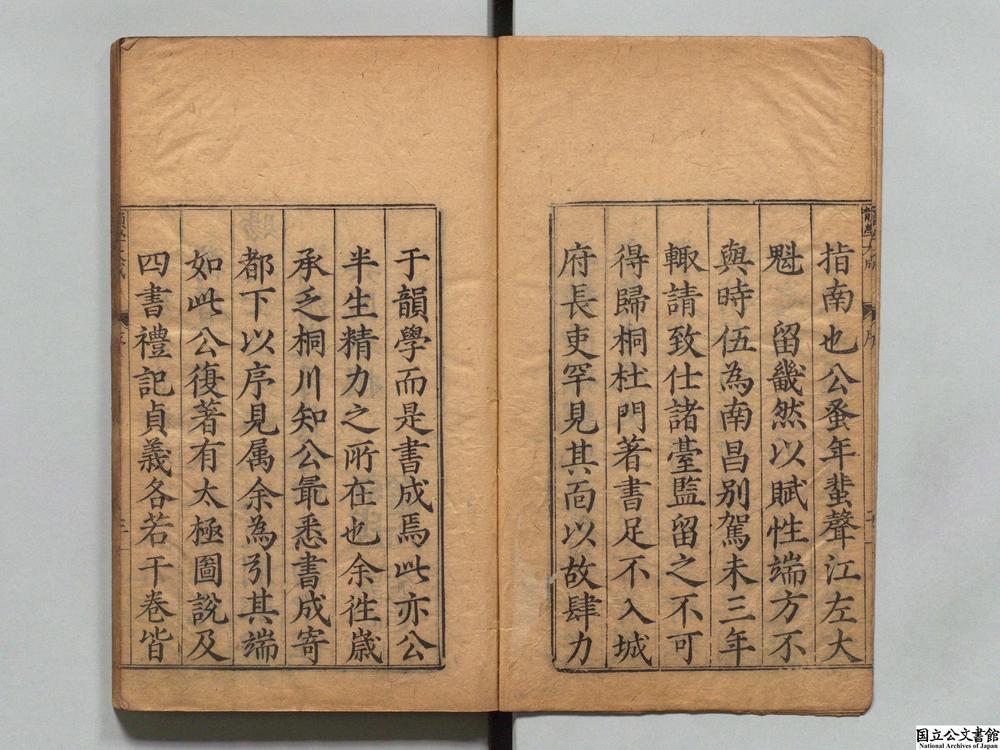 指南也公蚤年蜚聲江左大
魁　留畿然以賦性端方不
與時伍為南昌別駕未三年
輙請致仕諸臺監留之不可
得歸桐杜門著書足不入城
府長吏罕見其面以故肆力
于韻學而是書成焉此亦公
半生精力之所在也余徃歲
承乏桐川知公最悉書成寄
都下以序見属余為引其端
如此公復著有太極圖說及
四書禮記貞義各若干卷皆
国立公文書館
National Archives of Japan